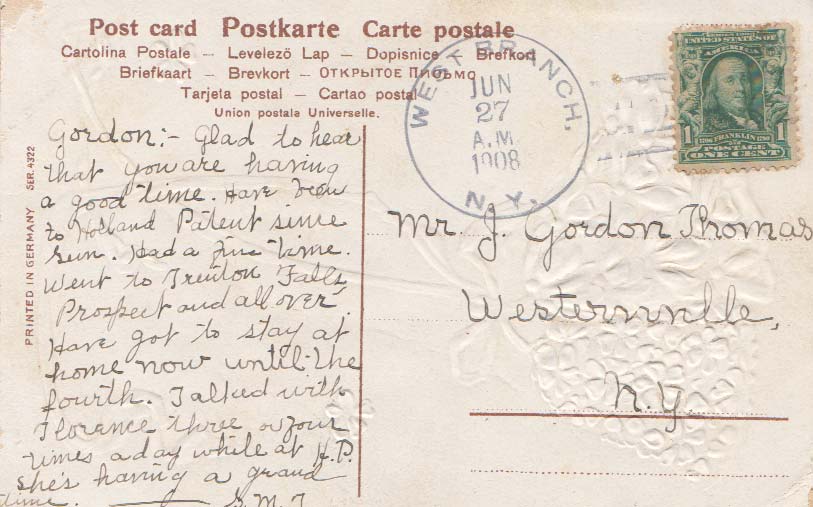 Post card Postkarte Carte postale
Cartolina Postale – Levelező Lap – Dopisnice – Brefkort
Briefkaart – Brevkort – ОТКРЫТОЕ ПИСЬМО
Tarjeta postal – Cartao postal
Union postale Universelle.
WEST BRANCH,
JUN
27
A.M.
1908
N.Y.
UNITED STATES OF AMERICA
1 FRANKLIN 1
POSTAGE
ONE CENT
Gordon:- Glad to hear
that you are having
a good time. Have been
to Holland Patent since
Sun. Had a fine time.
Went to Trenton Falls,
Prospect and all over.
Have got to stay at
home now until the
fourth. Talked with
Florence three or four
times a day while at H.P.
She's having a grand
time. G.M.T.
Mr J. Gordon Thomas
Westernville,
N.Y.
PRINTED IN GERMANY SER. 4322